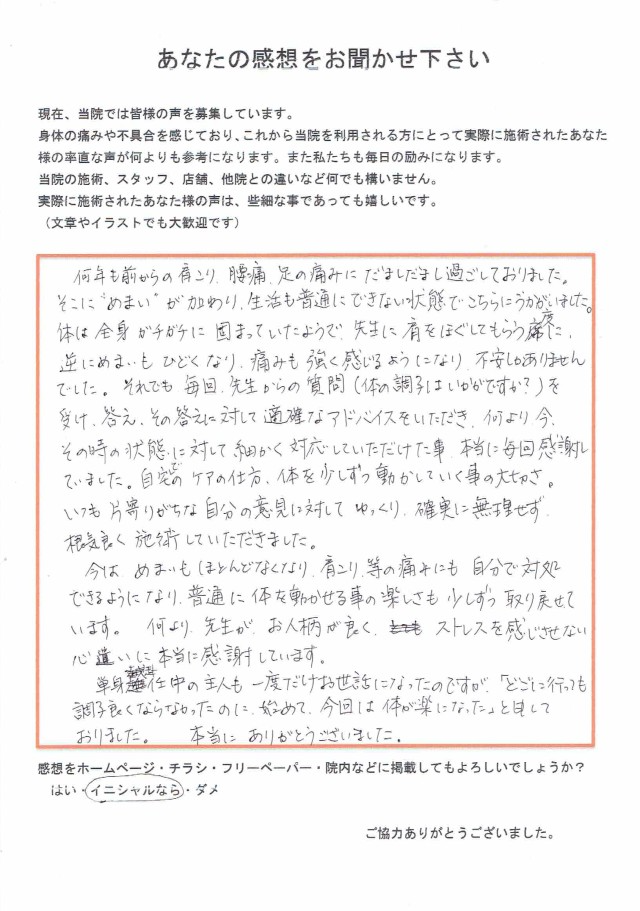 あなたの感想をお聞かせ下さい
現在、当院では皆様の声を募集しています。
身体の痛みや不具合を感じており、これから当院を利用される方にとって実際に施術されたあなた
様の率直な声が何よりも参考になります。また私たちも毎日の励みになります。
当院の施術、スタッフ、店舗、他院との違いなど何でも構いません。
実際に施術されたあなた様の声は、些細な事であっても嬉しいです。
（文章やイラストでも大歓迎です）
何年も前からの肩こり、腰痛、足の痛みに だましだまし過ごしておりました。
そこに"めまい"が加わり、生活も普通にできない状態でこちらにうかがいました。
体は全身ガチガチに固まっていたようで、先生に肩をほぐしてもらう度に、
逆にめまいもひどくなり、痛みも強く感じるようになり、不安しかありません
でした。それでも毎回、先生からの質問（体の調子はいかがですか？）を
受け、答え、その答えに対して適確なアドバイスをいただき、何より今、
その時の状態に対して細かく対応していただけた事、本当に毎回感謝し
ていました。自宅でのケアの仕方、体を少しずつ動かしていく事の大切さ。
いつも片寄りがちな自分の意見に対してゆっくり、確実に無理せず
根気良く施術していただきました。
今は めまいもほとんどなくなり、肩こり、等の痛みにも自分で対処
できるようになり、普通に体を動かせる事の楽しさも少しずつ取り戻せて
います。何より、先生が、お人柄が良く、ストレスを感じさせない
心遣いに本当に感謝しています。
単身赴任中の主人も一度だけお世話になったのですが、「どこに行っても
調子良くならなかったのに、始めて、今回は体が楽になった」と申して
おりました。 本当に ありがとうございました。
感想をホームページ・チラシ・フリーペーパー・院内などに掲載してもよろしいでしょうか？
はい・イニシャルなら・ダメ
ご協力ありがとうございました。